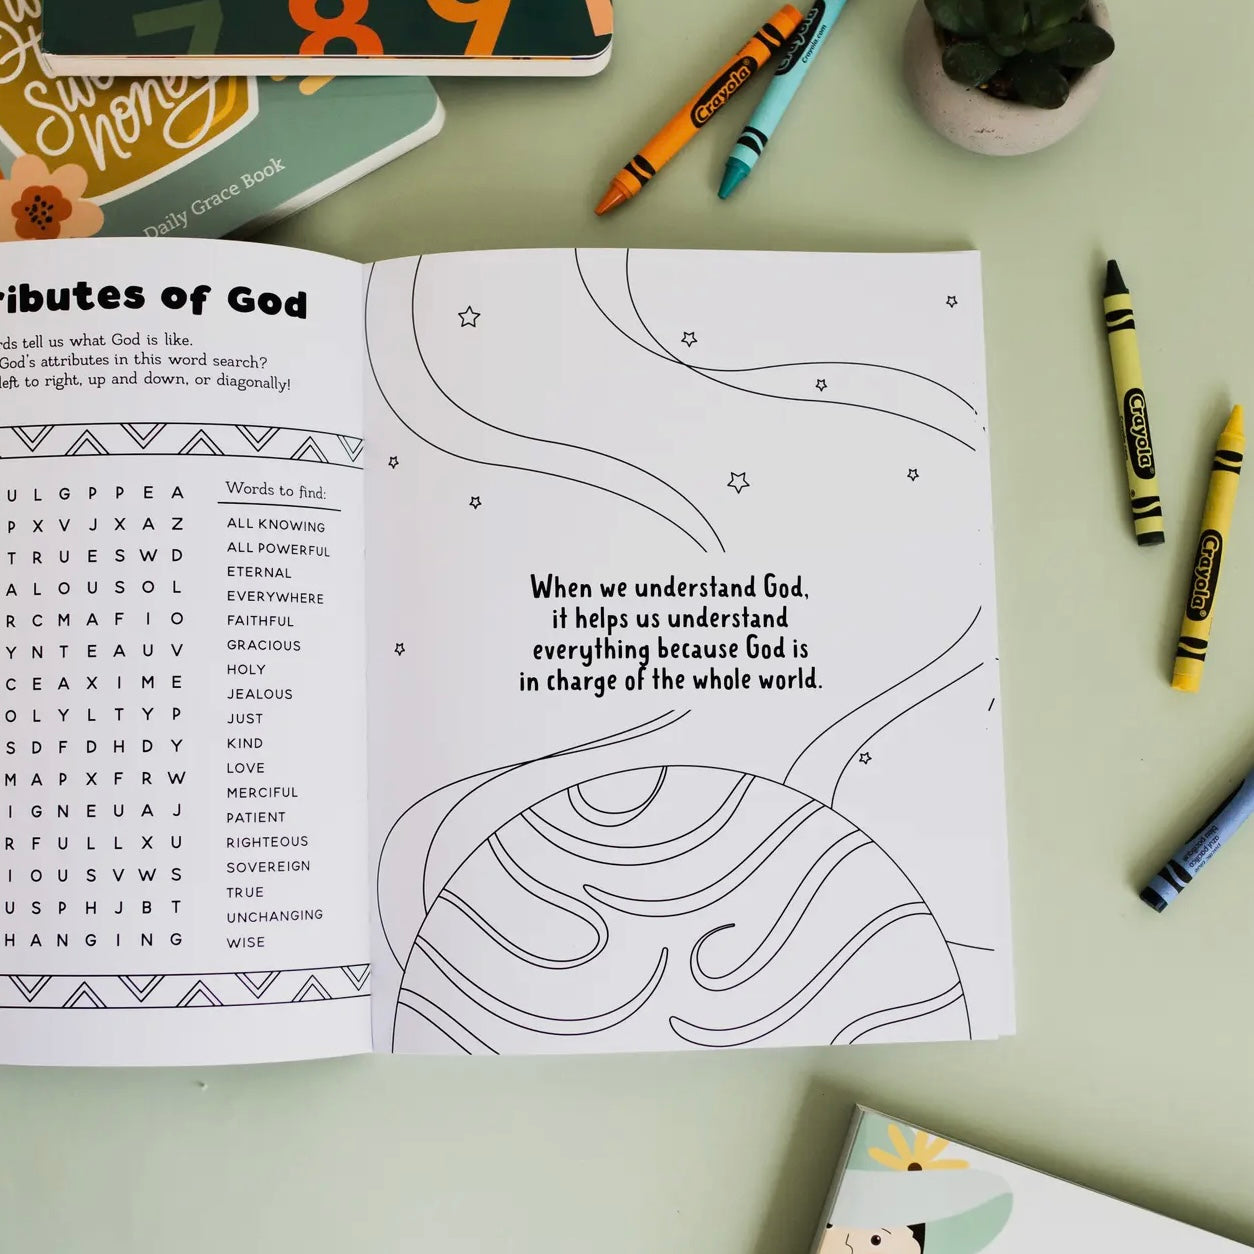 7 8 9
Sweet
honey
Daily Grace Book
Crayola
Crayola
Crayola.com
ributes of God
rds tell us what God is like.
God's attributes in this word search?
left to right, up and down, or diagonally!
U L G P P E A
P X V J X A Z
T R U E S W D
A L O U S O L
R C M A F I O
Y N T E A U V
C E A X I M E
O L Y L T Y P
S D F D H D Y
M A P X F R W
I G N E U A J
R F U L L X U
I O U S V W S
U S P H J B T
H A N G I N G
Words to find:
ALL KNOWING
ALL POWERFUL
ETERNAL
EVERYWHERE
FAITHFUL
GRACIOUS
HOLY
JEALOUS
JUST
KIND
LOVE
MERCIFUL
PATIENT
RIGHTEOUS
SOVEREIGN
TRUE
UNCHANGING
WISE
When we understand God,
it helps us understand
everything because God is
in charge of the whole world.
Crayola
Crayola